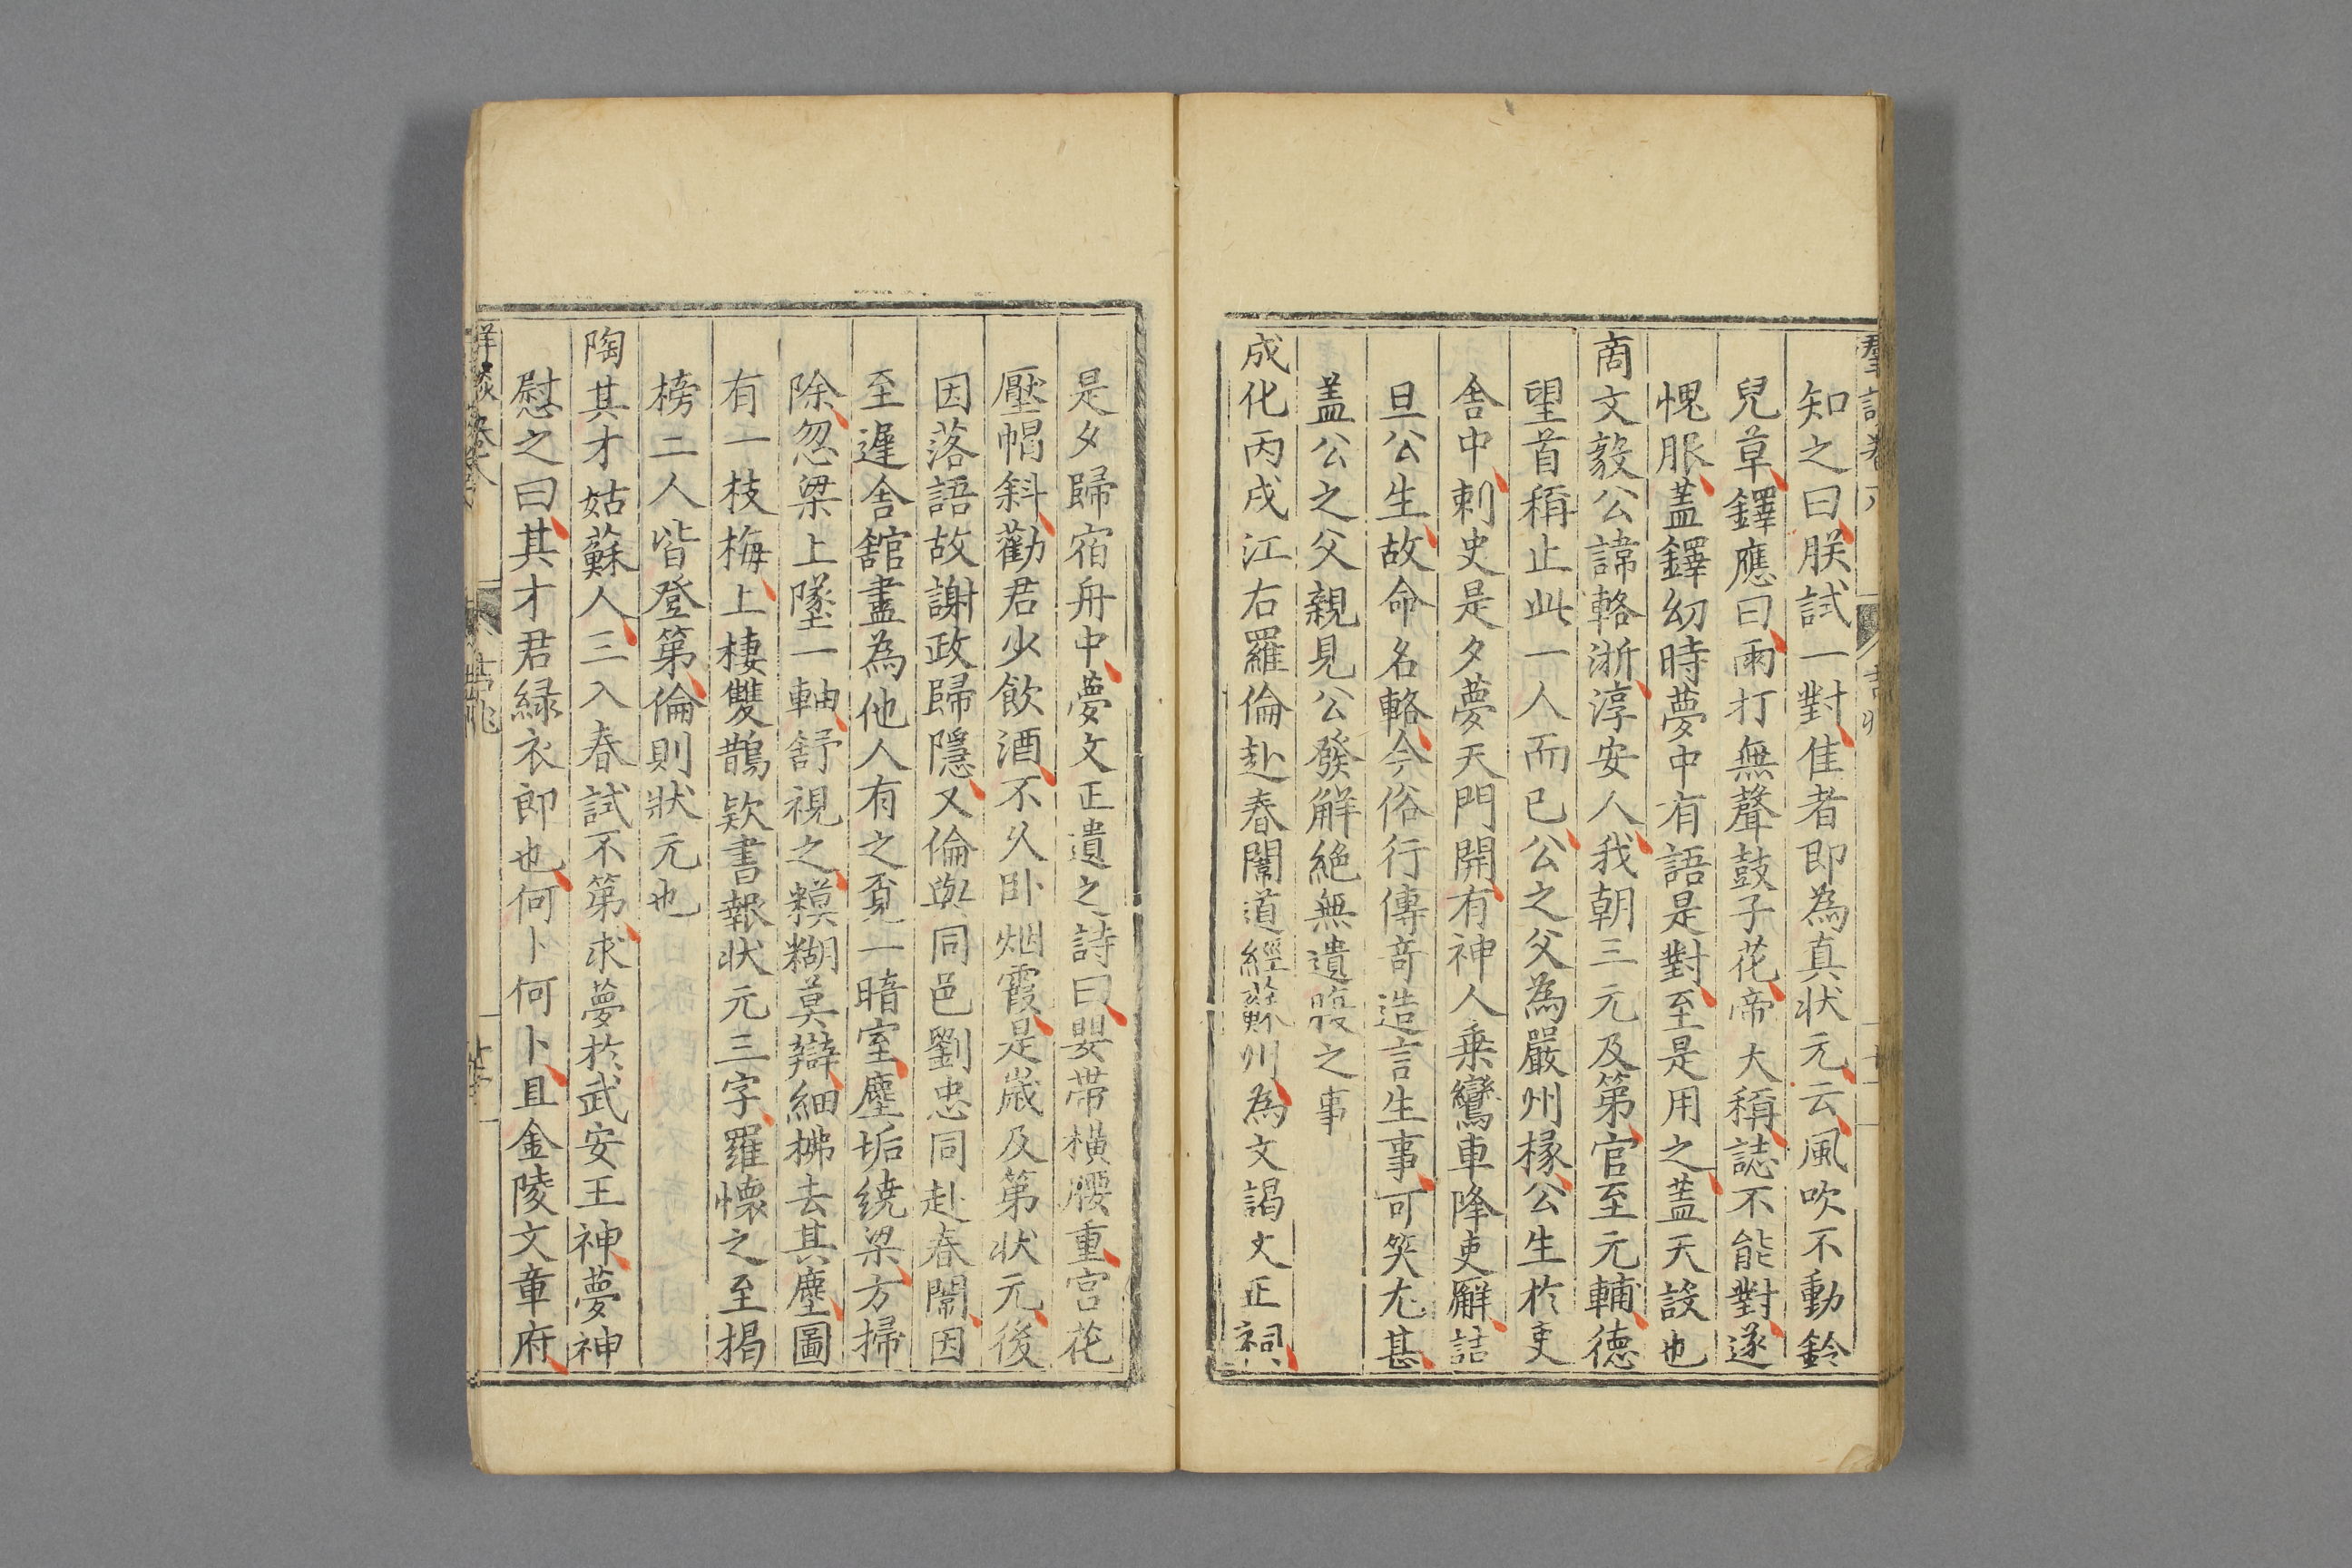 知之曰朕試一對佳者即為真状元云風吹不動鈴
兒草鐸應曰雨打無聲鼓子花帝大稱誌不能對遂
愧服蓋鐸幼時夢中有語是對至是用之蓋天設也
商文毅公諱輅浙淳安人我朝三元及第官至元輔德
望首稱止此一人而已公之父為嚴州掾公生於吏
舍中刺史是夕夢天門開有神人乗鸞車降吏廨詰
旦公生故命名輅今俗行傳竒造言生事可笑尤甚
蓋公之父親見公發解絶無遺腹之事
成化丙戌江右羅倫赴春闈道經蘇州為文謁文正祠
是夕歸宿舟中夢文正遺之詩曰嬰帯横腰重宫花
壓帽斜勸君少飲酒不久卧烟霞是歲及第状元後
因落語故謝政歸隱又倫與同邑劉忠同赴春闈因
至遲舍舘盡為他人有之覓一暗室塵垢繞梁方掃
除忽梁上墜一軸舒視之糢糊莫辯細拂去其塵圖
有一枝梅上棲雙鵲欵書報状元三字羅懷之至揭
榜二人皆登第倫則狀元也
陶其才姑蘇人三入春試不第求夢於武安王神夢神
慰之曰其才君緑衣郎也何卜何卜且金陵文章府